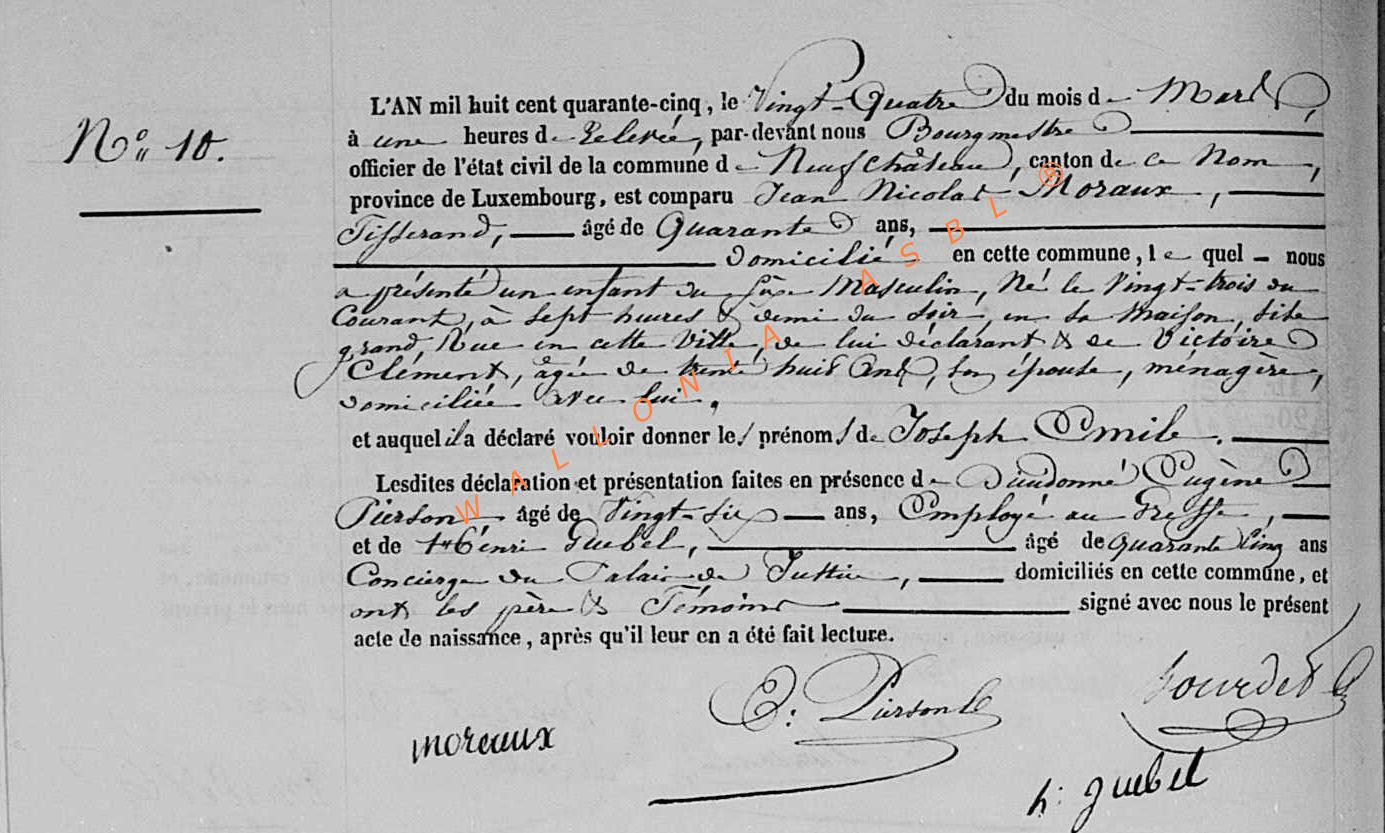 N.º 10.
L'AN mil huit cent quarante-cinq, le Vingt-Quatre du mois de Mars,
à une heures de Relevée, par-devant nous Bourgmestre
officier de l'état civil de la commune de Neufchâteau, canton de ce Nom,
province de Luxembourg, est comparu Jean Nicolas Moraux,
Tisserand, âgé de Quarante ans,
domicilié en cette commune, le quel nous
a présenté un enfant du sèxe Masculin, Né le Vingt-trois du
Courant, à sept heures & demi du soir, en sa Maison, site
grand Rue en cette Ville, de lui déclarant & de Victoire
Clément, âgée de trente huit Ans, son épouse, ménagère,
domiciliée avec lui.
et auquel il a déclaré vouloir donner les prénoms de Joseph Emile.
Lesdites déclaration et présentation faites en présence de Dieudonné Eugène
Pierson, âgé de Vingt-six ans, Employé au Greffe,
et de Henri Guebel, âgé de Quarante Cinq ans
Concierge du Palais de Justice, domiciliés en cette commune, et
ont les père & Témoins signé avec nous le présent
acte de naissance, après qu'il leur en a été fait lecture.
E: Pierson
Gourdet
moreaux
h: guebel
WALLONIA ASBL ®